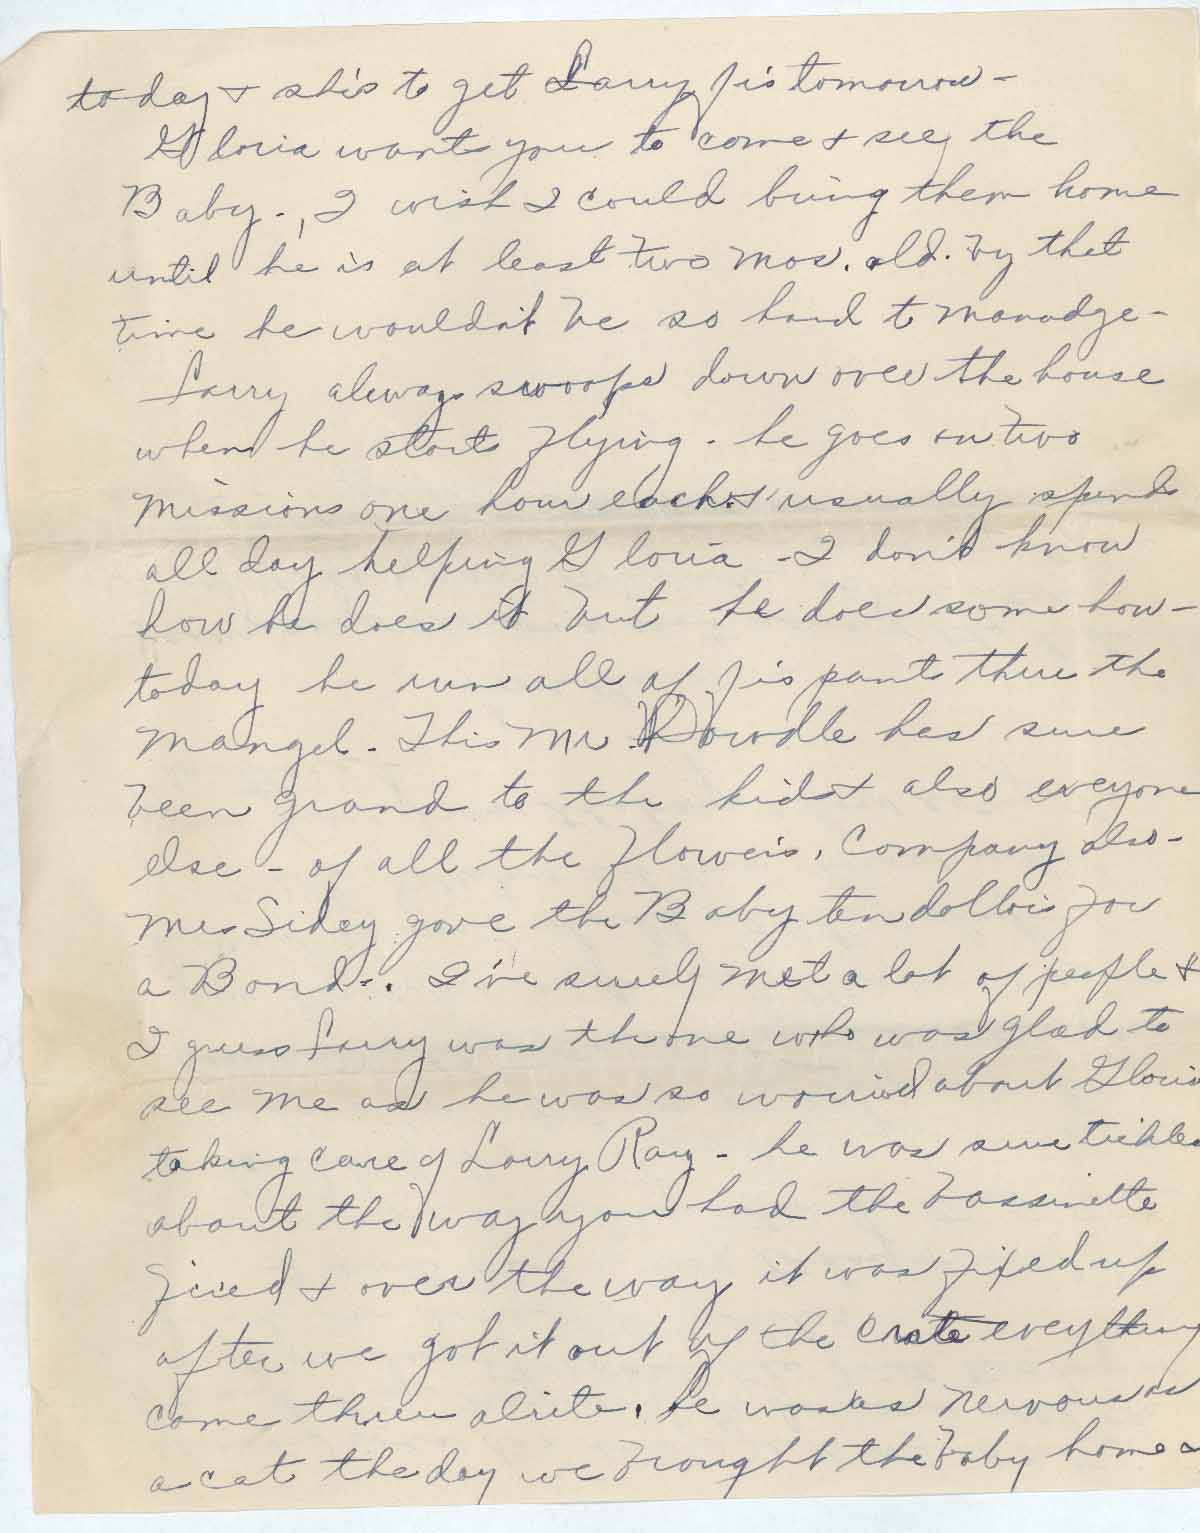 today & shis to get Larry Jis tomorrow -
Gloria wants you to come & see the
Baby -, I wish I could bring them home
until he is at least two mos. old. by that
time he wouldn't be so hard to manadge -
Larry always swoops down over the house
when he starts flying - he goes on two
missions one hour each & usually spends
all day helping Gloria - I don't know
how he does it but he does some how -
today he run all of Jis pant thru the
Mangel - This Mr. Dowdle has sure
been grand to the kids & also everyone
else - of all the flowers, Company also -
Mrs Sidey gave the Baby ten dollors for
a Bond -. I've surely met a lot of people &
I guess Larry was the one who was glad to
see me as he was so worried about Gloria
taking care of Larry Ray - he was sure tickled
about the way you had the bassinette
fixed & over the way it was fixed up
after we got it out of the crate everything
come thru alrite. he was as nervous as
a cat the day we brought the baby home &